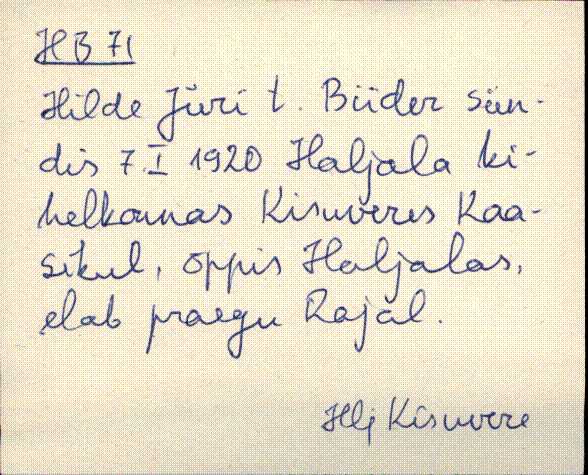 HB 71
Hilde Jüri t. Büder sün-
dis 7.I 1920 Haljala ki-
helkonnas Kisuveres Kaa-
sikul, õppis Haljalas,
elab praegu Rajal.
Hlj Kisuvere